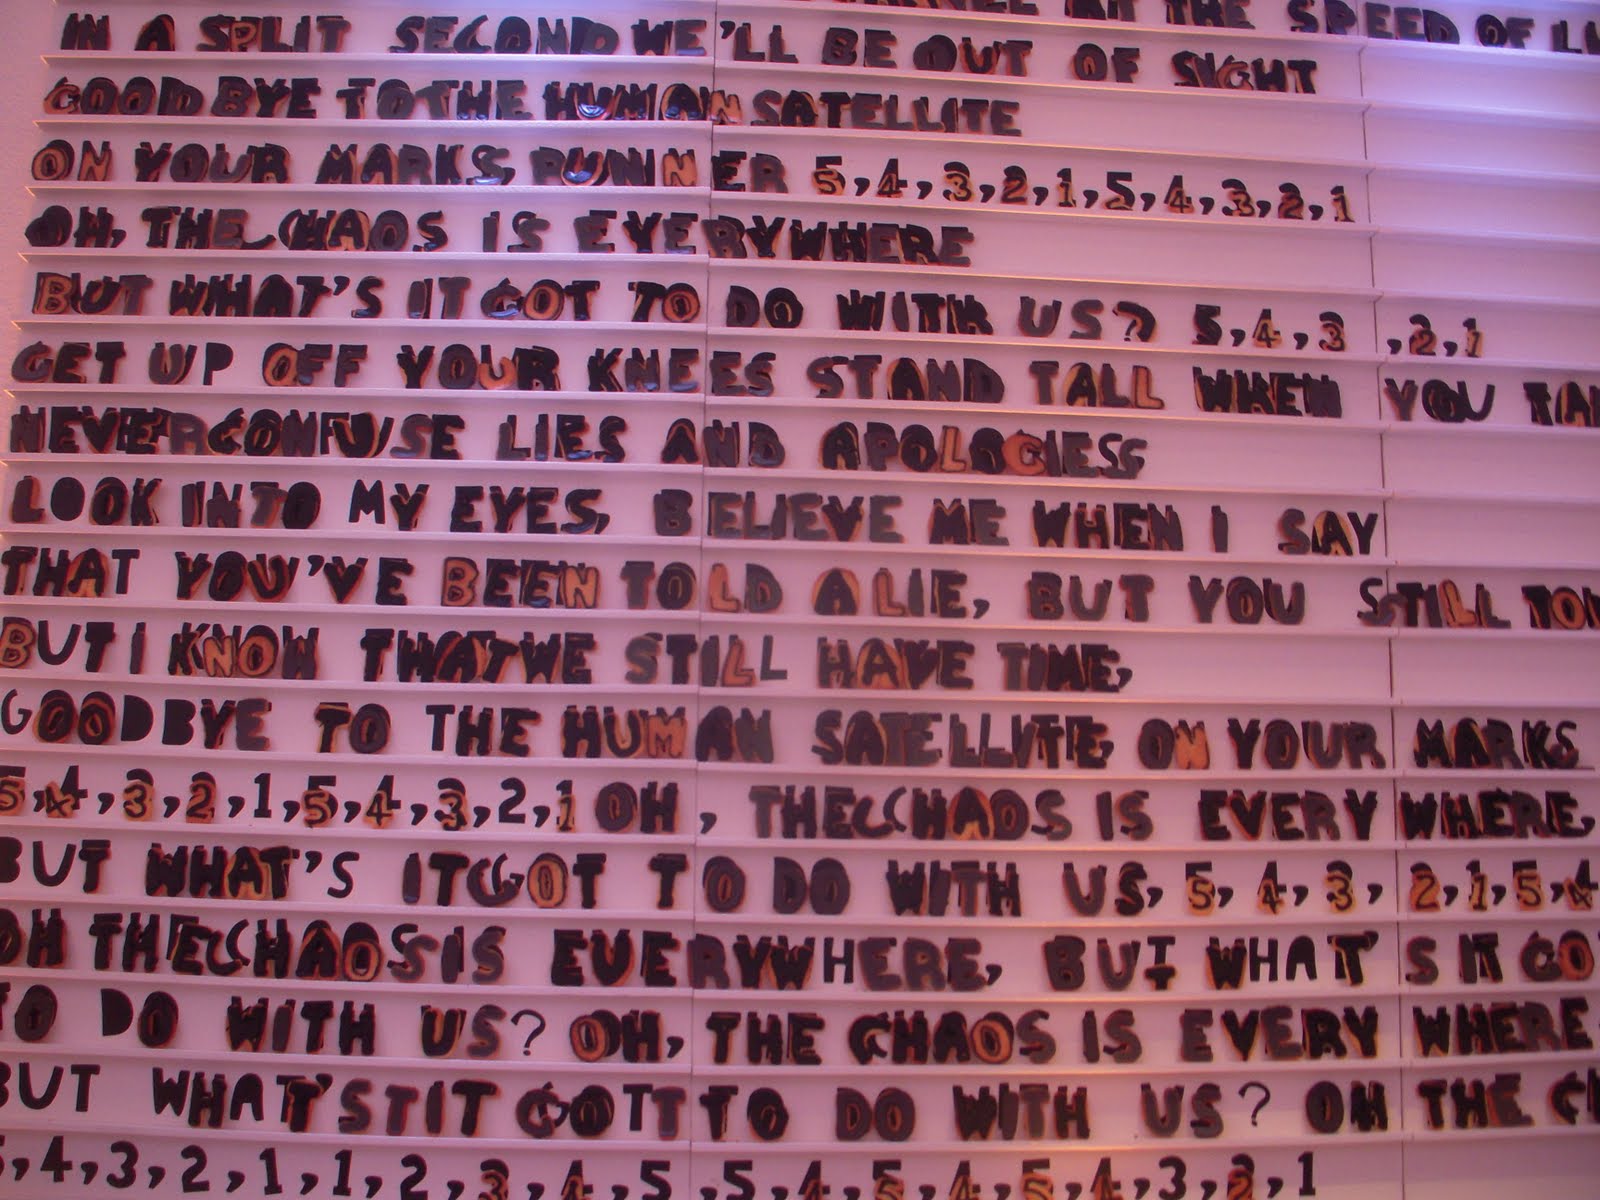 AT THE SPEED OF
IN A SPLIT SECOND WE'LL BE OUT OF SIGHT
GOODBYE TO THE HUMAN SATELLITE
ON YOUR MARKS, RUNNER 5,4,3,2,1,5,4,3,2,1
OH, THE CHAOS IS EVERYWHERE
BUT WHAT'S IT GOT TO DO WITH US? 5,4,3,2,1
GET UP OFF YOUR KNEES STAND TALL WHEN YOU
NEVER CONFUSE LIES AND APOLOGIES
LOOK INTO MY EYES, BELIEVE ME WHEN I SAY
THAT YOU'VE BEEN TOLD A LIE, BUT YOU STILL
BUT I KNOW THAT WE STILL HAVE TIME,
GOODBYE TO THE HUMAN SATELLITE, ON YOUR MARKS
5,4,3,2,1,5,4,3,2,1 OH, THE CHAOS IS EVERYWHERE,
BUT WHAT'S IT GOT TO DO WITH US, 5,4,3,2,1,5,4
OH THE CHAOS IS EVERYWHERE, BUT WHAT'S IT GO
TO DO WITH US? OH, THE CHAOS IS EVERYWHERE
BUT WHAT'S IT GOT TO DO WITH US? OH THE
5,4,3,2,1,1,2,3,4,5,5,4,5,4,5,4,3,2,1